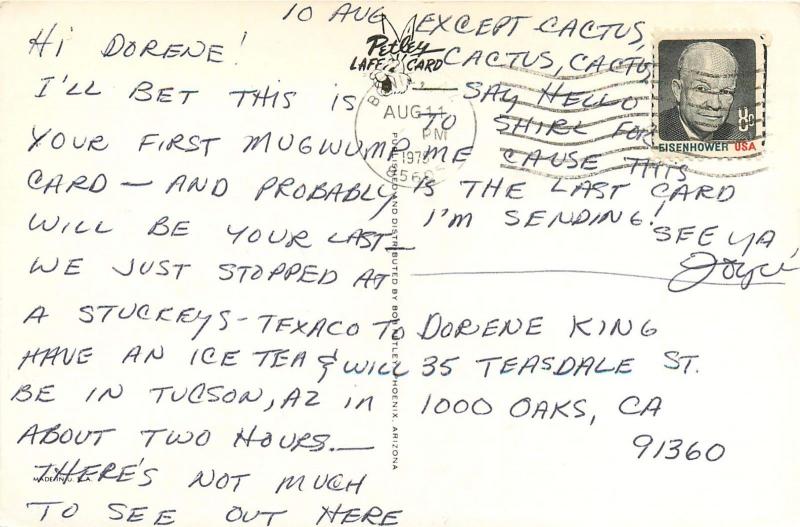 10 AUG
HI DORENE!
I'LL BET THIS IS
YOUR FIRST MUGWUMP
CARD — AND PROBABLY
WILL BE YOUR LAST —
WE JUST STOPPED AT
A STUCKEYS-TEXACO TO
HAVE AN ICE TEA & WILL
BE IN TUCSON, AZ IN
ABOUT TWO HOURS. —
THERE'S NOT MUCH
TO SEE OUT HERE
EXCEPT CACTUS,
CACTUS, CACTUS
SAY HELLO
TO SHIRL FOR
ME CAUSE THIS
IS THE LAST CARD
I'M SENDING!
SEE YA,
Joyce
DORENE KING
35 TEASDALE ST.
1000 OAKS, CA
91360
Petley
LAFF CARD
AUG 11
PM
EISENHOWER USA
8c
PUBLISHED AND DISTRIBUTED BY BOB PETLEY, PHOENIX, ARIZONA
MADE IN U.S.A.